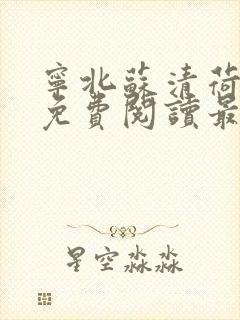 寧北蘇清荷
免費閱讀最
星空淼淼